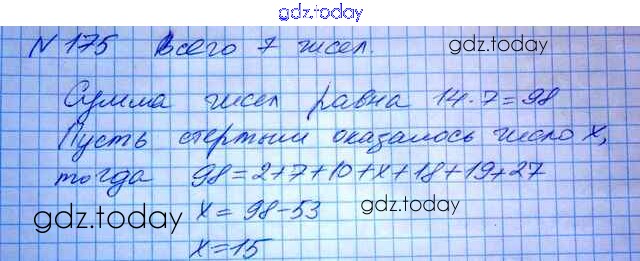 gdz.today
N 175 Всего 7 чисел. gdz.today
Сумма чисел равна 14·7=98
Пусть стертым оказалось число x,
тогда 98=2+7+10+x+18+19+27
gdz.today x=98-53 gdz.today
x=15